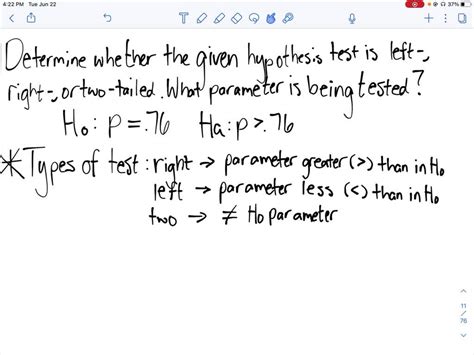 4:22 PM Tue Jun 22
37%
Determine whether the given hypothesis test is left-,
right-, or two-tailed. What parameter is being tested?
Ho: p = .76 Ha: p > .76
*Types of test: right → parameter greater (>) than in Ho
left → parameter less (<) than in Ho
two → ≠ Ho parameter
11
/
76